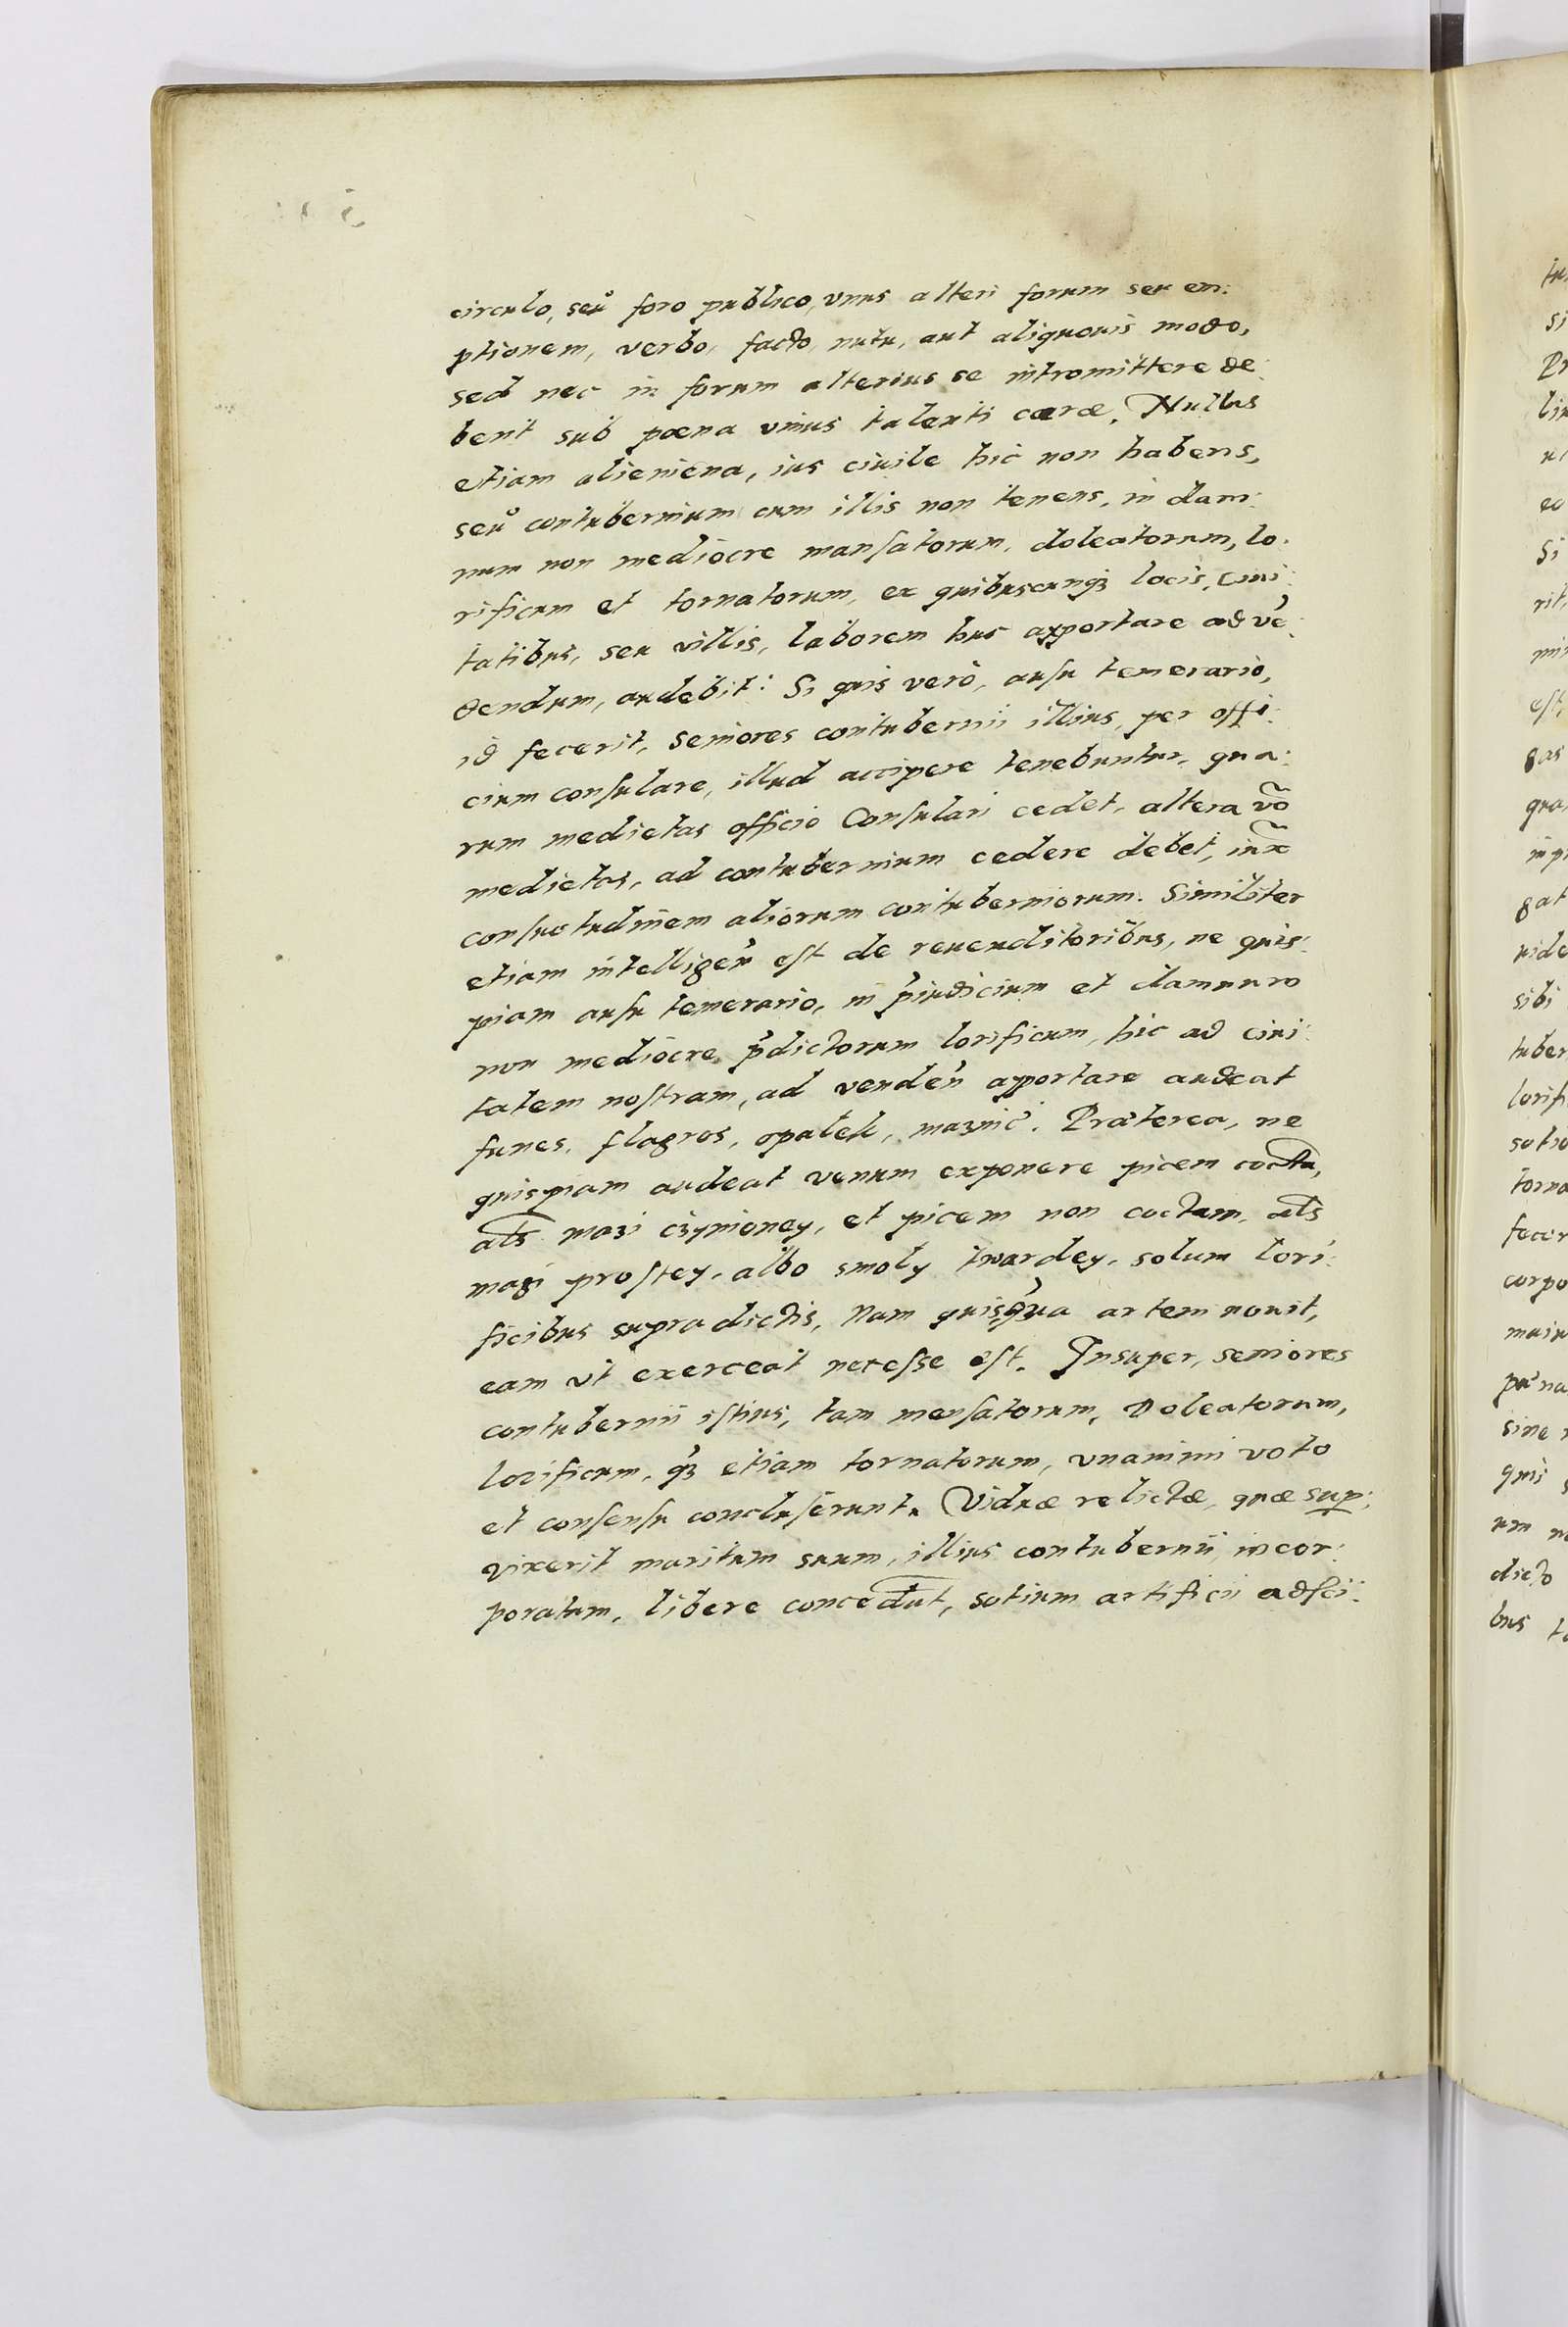 circulo, seu foro publico, vnus alteri forum seu em:
ptionem, verbo, facto nutu, aut aliquouis modo,
sed nec in forum alterius se intromittere de:
bent sub poena vnius talenti cæræ. Nullus
etiam alieniena, ius ciuile hic non habens,
seu contubernium cum illis non tenens, in dam:
num non mediocre mensatorum, doleatorum, lo:
rificum et tornatorum, ex quibuscunq3 locis, ciui:
tatibus, seu villis, laborem huc apportare ad vē:
dendum, audebit: Si quis verò, ausu temerario,
id fecerit, seniores contubernii illius, per offi:
cium consulare, illud accipere tenebuntur, qua:
rum medietas officio Consulari cedet, altera vō
medietas, ad contubernium cedere debet, iux̃
consuetudinem aliorum contuberniorum. Similiter
etiam intelligen̄ est de reuenditoribus, ne quis:
piam ausu temerario, in p̄iudicium et damnum
non mediocre p̄dictorum lorificum, hic ad ciui:
tatem nostram, ad venden̄ apportare audeat
funes, flagros, opalek, maznic. Præterea, ne
quispiam audeat venum exponere picem coctā,
als mazi czynioney, et picem non coctam, als
mazi prostey, albo smoly twardey, solum lori:
ficibus supradictis, Nam quisq̄ua artem nouit,
eam vt exerceat necesse est. Insuper, seniores
contubernii istius, tam mensatorum, Doleatorum,
lorificum, q3 etiam tornatorum, vnanimi voto
et consensu concluserunt. Viduæ relictæ, quæ sup:
vixerit maritum suum, illius contubernii incor:
poratum, libere concedūt, sotium artificii adsci: